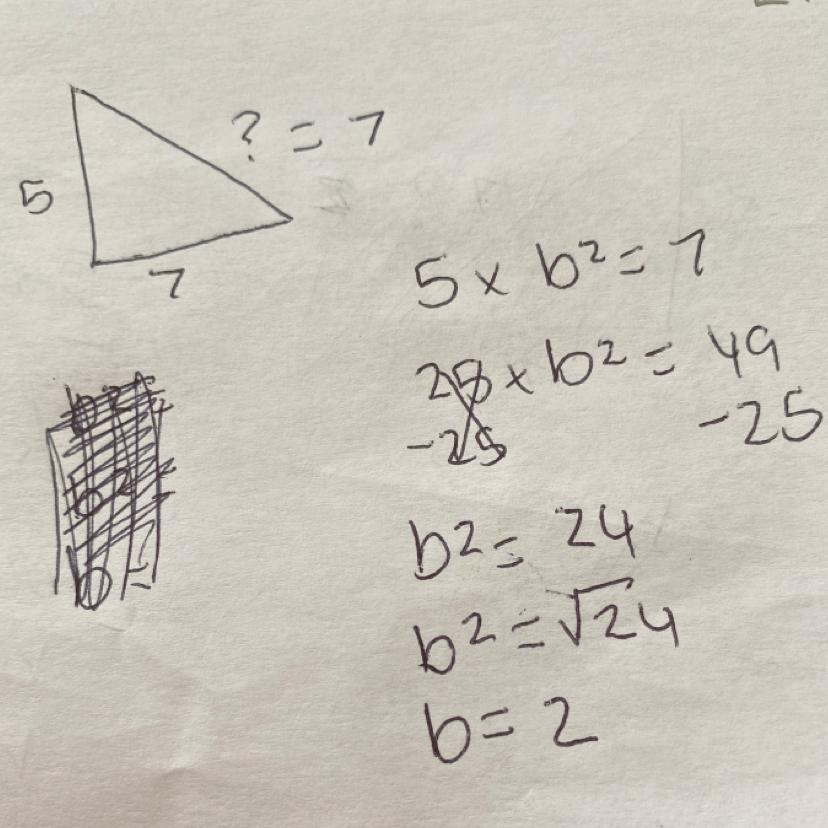 ? = 7
5
7
5 x b² = 7
25 x b² = 49
-25 -25
b² = 24
b² = √24
b = 2